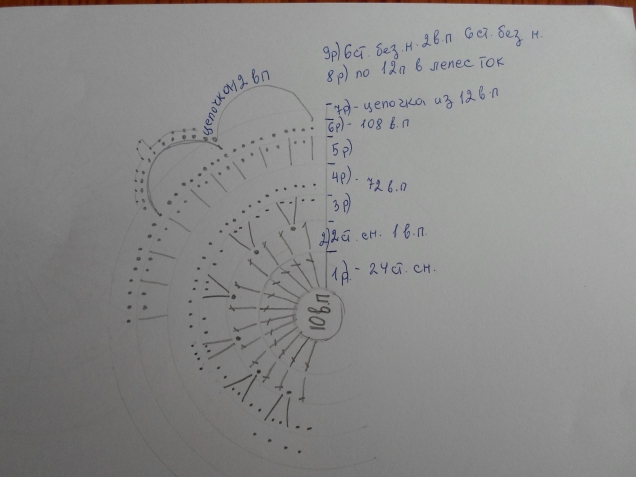 9р) 6 ст. без. н. 2 в.п 6 ст. без н.
8р) по 12п в лепесток
цепочка 12 вп
7р) - цепочка из 12 в.п
6р) - 108 в.п
5р)
4р) - 72 в.п
3р)
2) 2 ст. сн. 1 в.п.
1р. - 24 ст. сн.
10 вп